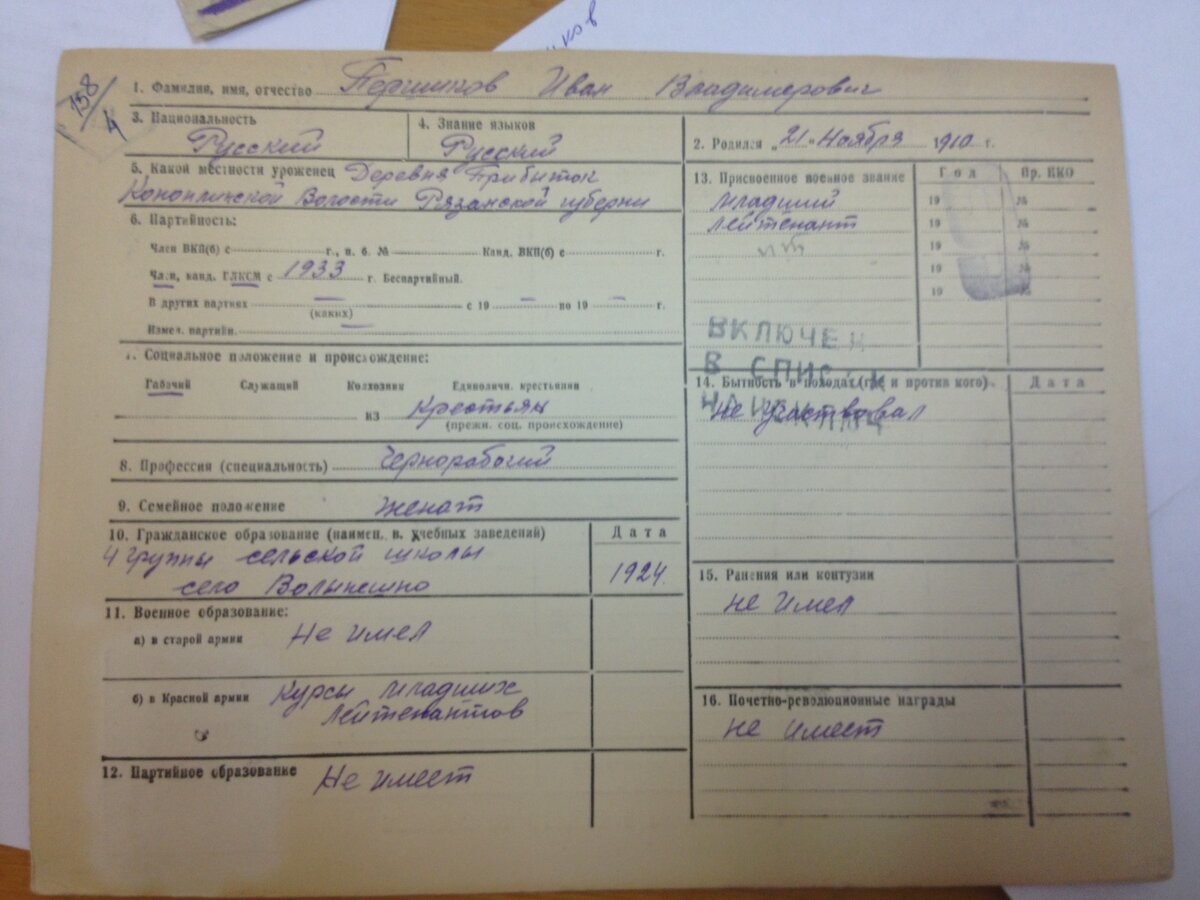 158/4
1. Фамилия, имя, отчество Першиков Иван Владимирович
3. Национальность
Русский
4. Знание языков
Русский
2. Родился „21" Ноября 1910 г.
5. Какой местности уроженец Деревня Прибыток
Коноплинской Волости Рязанской губерни
6. Партийность:
Член ВКП(б) с г., п. б. № Канд. ВКП(б) с г.
Член, канд. ВЛКСМ с 1933 г. Беспартийный.
В других партиях — с 19 — по 19 — г.
(каких)
Измен. партийн. —
7. Социальное положение и происхождение:
Рабочий Служащий Колхозник Единоличн. крестьянин
из крестьян
(прежн. соц. происхождение)
8. Профессия (специальность) Чернорабочий
9. Семейное положение женат
10. Гражданское образование (наимен. в. учебных заведений)
Дата
4 группы сельской школы
село Волынешно
1924.
11. Военное образование:
а) в старой армии Не имел
б) в Красной армии Курсы младших
лейтенантов
12. Партийное образование Не имеет
13. Присвоенное военное звание
Год
Пр. НКО
младший
19 №
лейтенант
19 №
19 №
19 №
19 №
ВКЛЮЧЕН
В СПИСОК
14. Бытность в походах (где и против кого)
Дата
не участвовал
15. Ранения или контузии
не имел
16. Почетно-революционные награды
не имеет